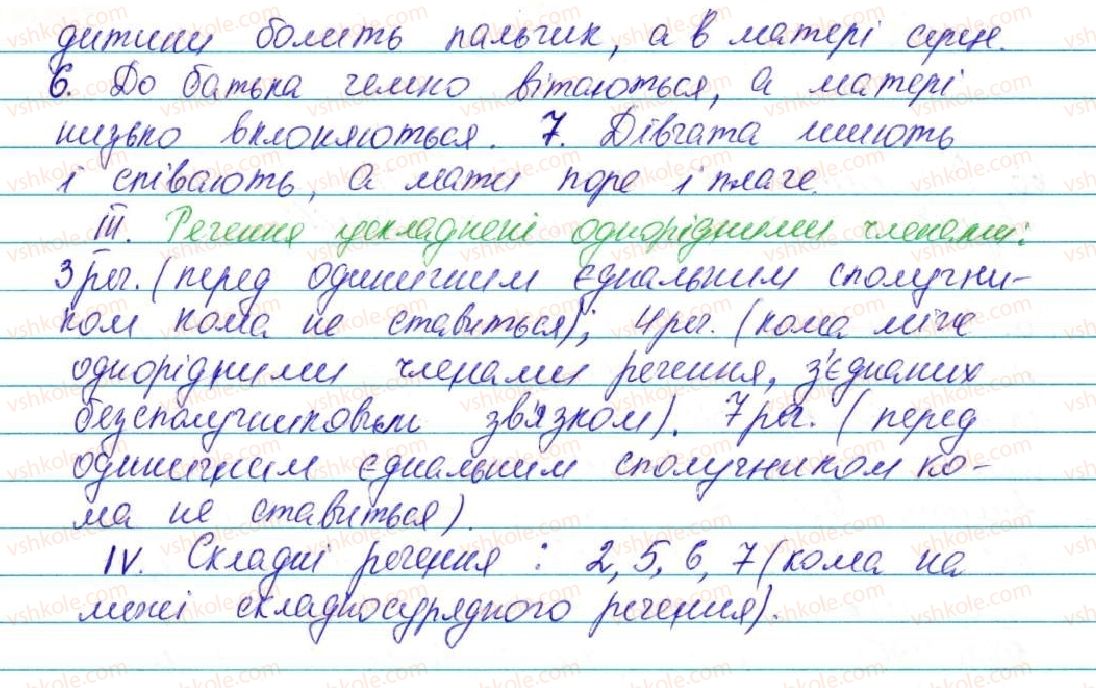 дитини болить пальчик, а в матері серце.
6. До батька чемно вітаються, а матері
низько вклоняються. 7. Дівчата шиють
і співають, а мати поре і плаче.
III. Речення ускладнені однорідними членами:
3 реч. (перед одиничним єднальним сполучни-
ком кома не ставиться); 4 реч. (кома між
однорідними членами речення, з'єднаних
безсполучниковим зв'язком). 7 реч. (перед
одиничним єднальним сполучником ко-
ма не ставиться).
IV. Складні речення : 2, 5, 6, 7 (кома на
межі складносурядного речення).